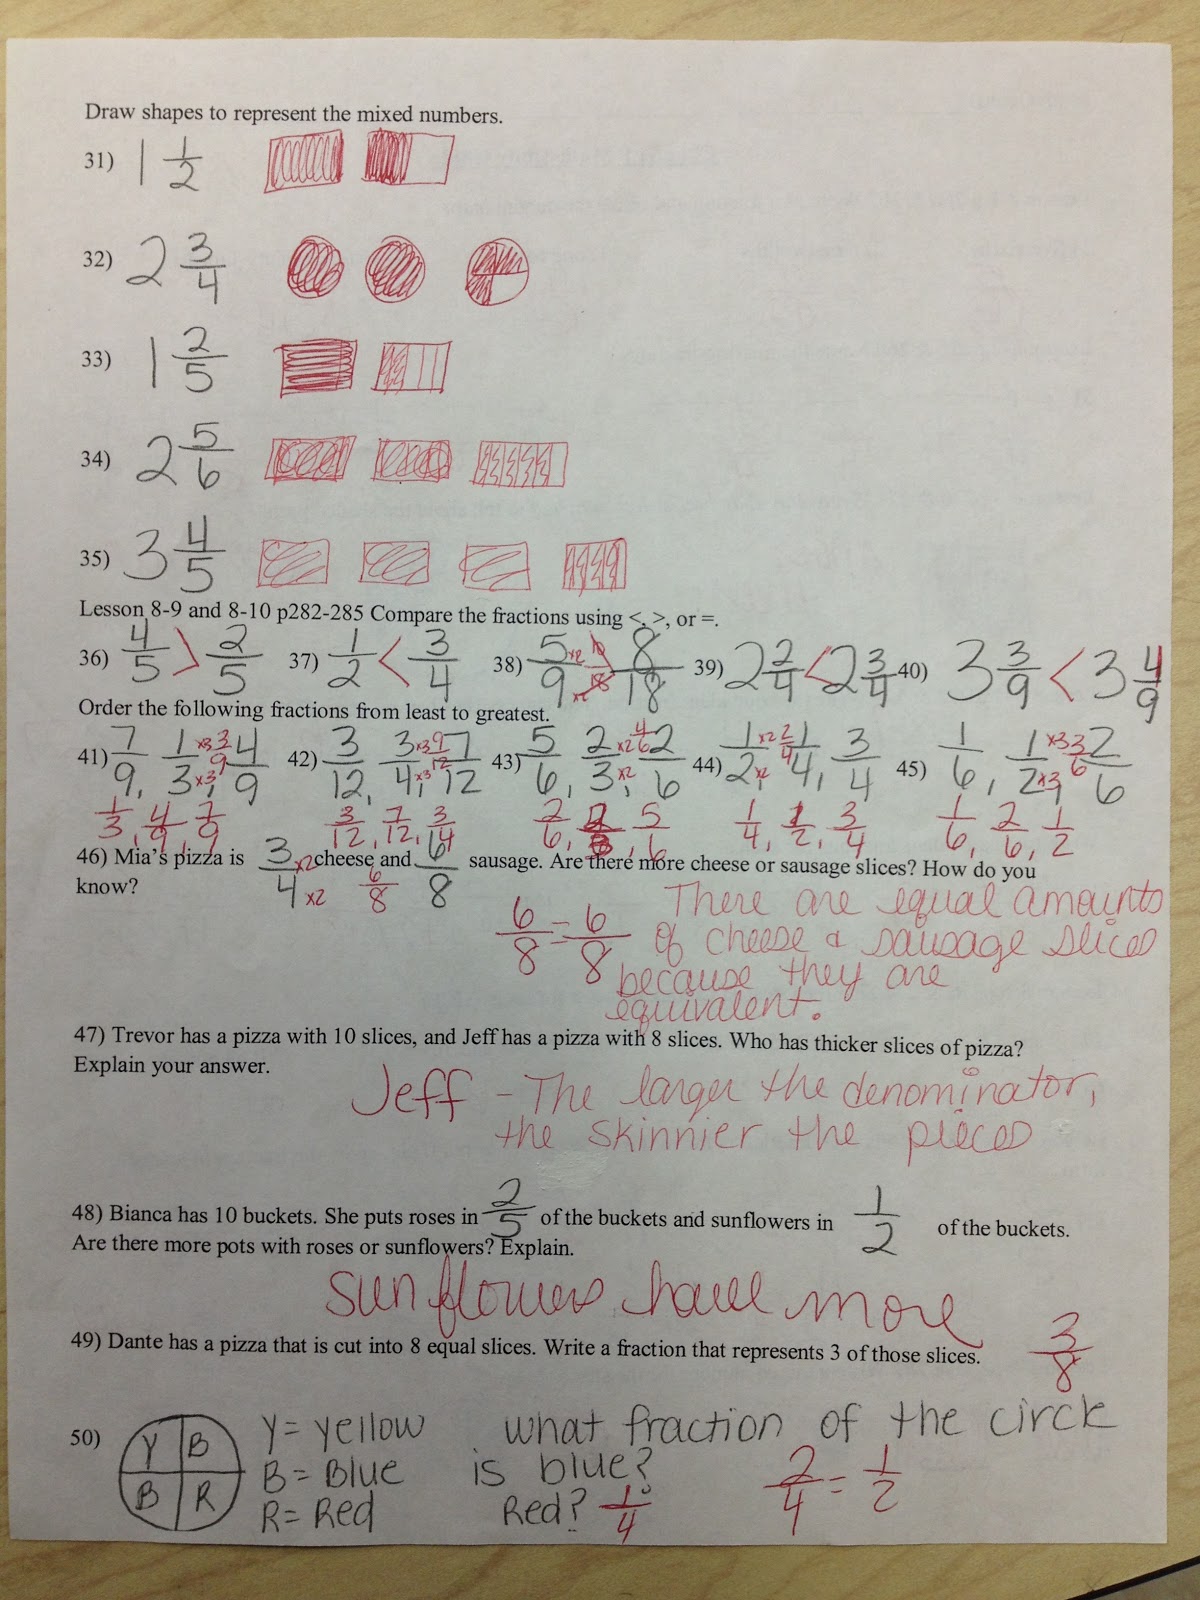 Draw shapes to represent the mixed numbers.
31) 1 1/2
32) 2 3/4
33) 1 2/5
34) 2 5/6
35) 3 4/5
Lesson 8-9 and 8-10 p282-285 Compare the fractions using <, >, or =.
36) 4/5 > 2/5 37) 1/2 < 3/4 38) 5/9 x2 x2 10/18 8/18 39) 2 2/4 < 2 3/4 40) 3 3/9 < 3 4/9
Order the following fractions from least to greatest.
41) 7/9, 1/3 x3 x3 3/9, 4/9 42) 3/12, 3/4 x3 x3 9/12, 7/12 43) 5/6, 2/3 x2 x2 4/6, 2/6 44) 1/2 x2 x2 2/4, 1/4, 3/4 45) 1/6, 1/2 x3 x3 3/6, 2/6
1/3, 4/9, 7/9 3/12, 7/12, 3/14 2/6, 5/6 1/4, 1/2, 3/4 1/6, 2/6, 1/2
46) Mia's pizza is 3/4 x2 x2 cheese and 6/8 6/8 sausage. Are there more cheese or sausage slices? How do you
know?
6/8 = 6/8 There are equal amounts
of cheese & sausage slices
because they are
equivalent.
47) Trevor has a pizza with 10 slices, and Jeff has a pizza with 8 slices. Who has thicker slices of pizza?
Explain your answer.
Jeff - The larger the denominator,
the skinnier the pieces
48) Bianca has 10 buckets. She puts roses in 2/5 of the buckets and sunflowers in 1/2 of the buckets.
Are there more pots with roses or sunflowers? Explain.
sunflowers have more
49) Dante has a pizza that is cut into 8 equal slices. Write a fraction that represents 3 of those slices. 3/8
50) Y B Y = yellow what fraction of the circle
B R B = Blue is blue? 2/4 = 1/2
R = Red Red? 1/4